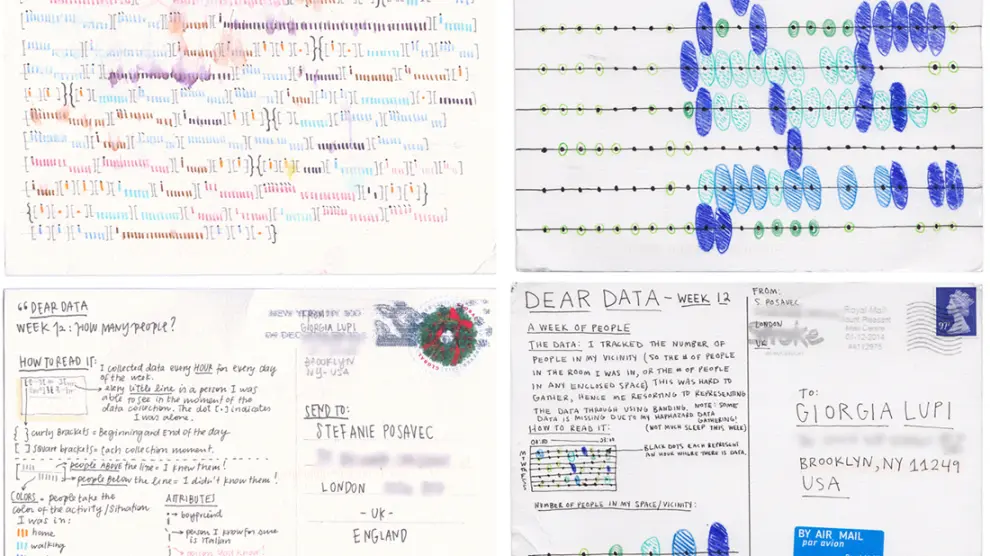 DEAR DATA
WEEK 12: HOW MANY PEOPLE?
HOW TO READ IT:
I collected data every HOUR for every day
of the week.
every little line is a person I was
able to see in the moment of the
data collection. The dot [·] indicates
I was alone.
{ } curly Brackets = Beginning and End of the day
[ ] square brackets = Each collection moment.
people ABOVE the line = I knew them!
people below the line = I didn't know them!
COLORS = people take the
color of the activity/situation
I was in:
home
walking
ATTRIBUTES
boyfriend
person I know for sure
is italian
GIORGIA LUPI
BROOKLYN
NY-USA
SEND TO:
STEFANIE POSAVEC
LONDON
-UK-
ENGLAND
DEAR DATA - WEEK 12
A WEEK OF PEOPLE
THE DATA: I TRACKED THE NUMBER OF
PEOPLE IN MY VICINITY (SO THE # OF PEOPLE
IN THE ROOM I WAS IN, OR THE # OF PEOPLE
IN ANY ENCLOSED SPACE) THIS WAS HARD TO
GATHER, HENCE ME RESORTING TO REPRESENTING
THE DATA THROUGH USING BANDING. NOTE: SOME
DATA IS MISSING DUE TO MY HAPHAZARD DATA
GATHERING!
(NOT MUCH SLEEP THIS WEEK)
HOW TO READ IT:
BLACK DOTS EACH REPRESENT
AN HOUR WHERE THERE IS DATA.
M
T
W
T
F
S
S
NUMBER OF PEOPLE IN MY SPACE/VICINITY:
FROM:
S. POSAVEC
LONDON
UK
Royal Mail
Mount Pleasant
Mail Centre
01-12-2014
TO:
GIORGIA LUPI
BROOKLYN, NY 11249
USA
BY AIR MAIL
par avion